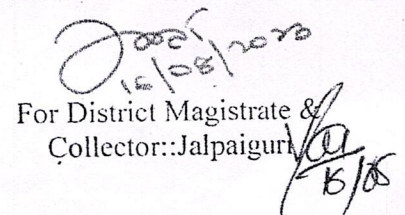 16/08/2023
For District Magistrate &
Collector::Jalpaiguri
16/08